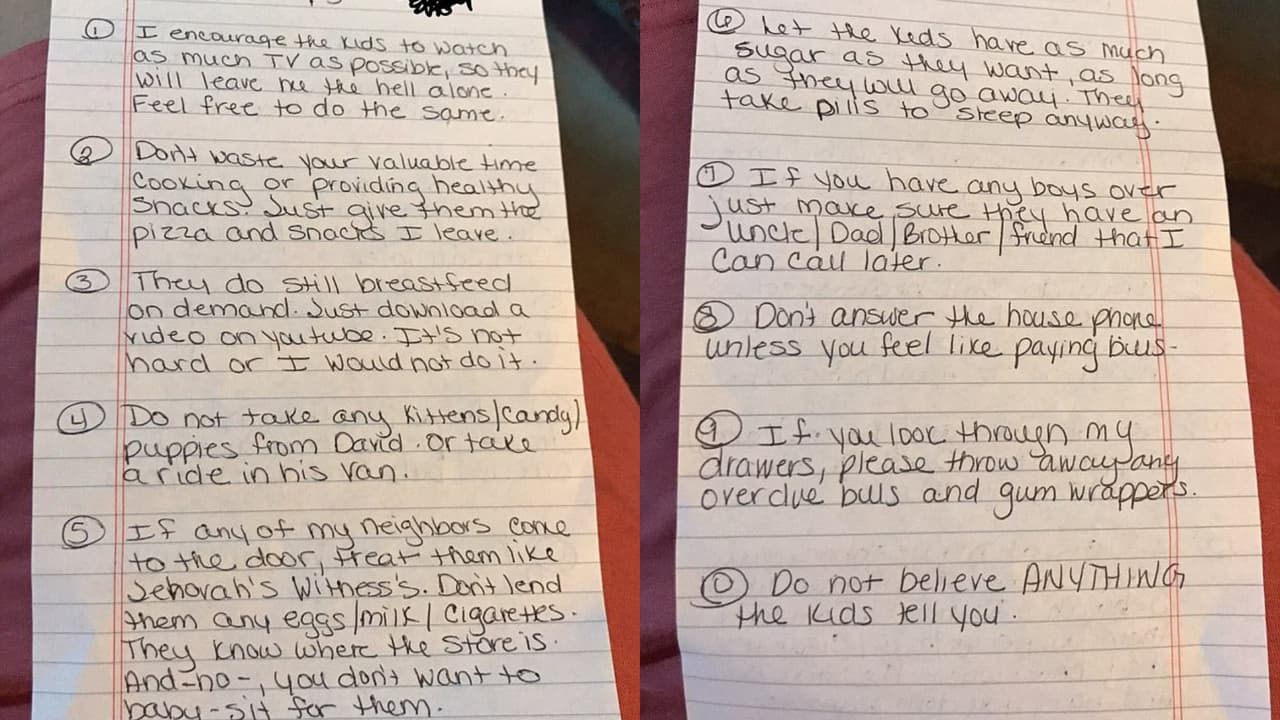 ① I encourage the kids to watch
as much TV as possible, so they
will leave me the hell alone.
Feel free to do the same.
② Don't waste your valuable time
cooking or providing healthy
snacks. Just give them the
pizza and snacks I leave.
③ They do still breastfeed
on demand. Just download a
video on youtube. It's not
hard or I would not do it.
④ Do not take any kittens/candy/
puppies from David. Or take
a ride in his van.
⑤ If any of my neighbors come
to the door, treat them like
Jehovah's Witness's. Don't lend
them any eggs/milk/cigarettes.
They know where the store is.
And-no-, you don't want to
baby-sit for them.
⑥ Let the kids have as much
sugar as they want, as long
as they will go away. They
take pills to sleep anyway.
⑦ If you have any boys over
just make sure they have an
uncle/Dad/Brother/friend that I
can call later.
⑧ Don't answer the house phone
unless you feel like paying bills-
⑨ If you look through my
drawers, please throw away any
overdue bills and gum wrappers.
⓪ Do not believe ANYTHING
the kids tell you.